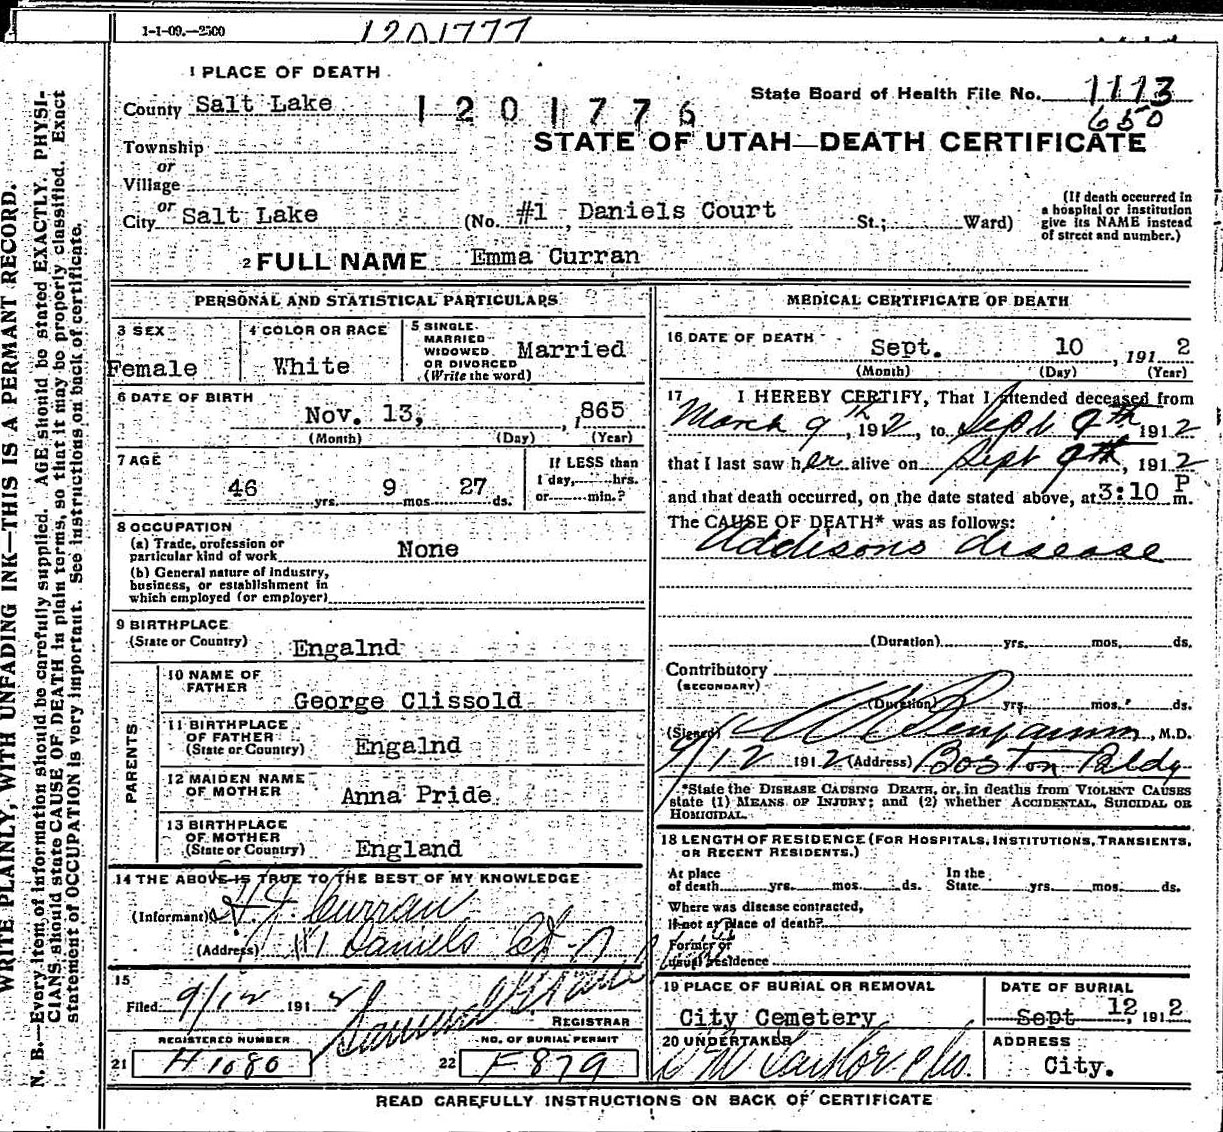 1-1-09.—2500
1201777
1 PLACE OF DEATH
County Salt Lake
1201776
State Board of Health File No. 1113
650
STATE OF UTAH—DEATH CERTIFICATE
Township
or
Village
or
City Salt Lake (No. #1 Daniels Court St.; Ward)
(If death occurred in
a hospital or institution
give its NAME instead
of street and number.)
2 FULL NAME Emma Curran
PERSONAL AND STATISTICAL PARTICULARS
3 SEX
Female
4 COLOR OR RACE
White
5 SINGLE
MARRIED
WIDOWED
OR DIVORCED
(Write the word)
Married
6 DATE OF BIRTH
Nov. 13, ,865
(Month) (Day) (Year)
7 AGE
46 yrs. 9 mos. 27 ds.
If LESS than
1 day, hrs.
or min.?
8 OCCUPATION
(a) Trade, profession or
particular kind of work None
(b) General nature of industry,
business, or establishment in
which employed (or employer)
9 BIRTHPLACE
(State or Country) Engalnd
PARENTS
10 NAME OF
FATHER
George Clissold
11 BIRTHPLACE
OF FATHER
(State or Country) Engalnd
12 MAIDEN NAME
OF MOTHER
Anna Pride
13 BIRTHPLACE
OF MOTHER
(State or Country) England
14 THE ABOVE IS TRUE TO THE BEST OF MY KNOWLEDGE
(Informant) H.J. Curran
(Address) #1 Daniels Ct
15
Filed 9/12 1912 Samuel G. Paul
REGISTRAR
REGISTERED NUMBER
21 H1080
NO. OF BURIAL PERMIT
22 F879
MEDICAL CERTIFICATE OF DEATH
16 DATE OF DEATH
Sept. 10 , 1912
(Month) (Day) (Year)
17 I HEREBY CERTIFY, That I attended deceased from
March 9th, 1912, to Sept 9th 1912
that I last saw her alive on Sept 9th, 1912
and that death occurred, on the date stated above, at 3:10 P m.
The CAUSE OF DEATH* was as follows:
Addisons disease
(Duration) yrs. mos. ds.
Contributory
(SECONDARY)
(Duration) yrs. mos. ds.
(Signed) Benjamin, M.D.
9/12 1912 (Address) Boston Bldg
*State the DISEASE CAUSING DEATH, or, in deaths from VIOLENT CAUSES
state (1) MEANS OF INJURY; and (2) whether ACCIDENTAL, SUICIDAL OR
HOMICIDAL.
18 LENGTH OF RESIDENCE (FOR HOSPITALS, INSTITUTIONS, TRANSIENTS,
OR RECENT RESIDENTS.)
At place
of death yrs. mos. ds.
In the
State yrs. mos. ds.
Where was disease contracted,
If not at place of death?
Former or
usual residence
19 PLACE OF BURIAL OR REMOVAL
City Cemetery
DATE OF BURIAL
Sept 12, 1912
20 UNDERTAKER
ADDRESS
City.
READ CAREFULLY INSTRUCTIONS ON BACK OF CERTIFICATE
WRITE PLAINLY, WITH UNFADING INK—THIS IS A PERMANT RECORD.
N. B.—Every item of information should be carefully supplied. AGE should be stated EXACTLY. PHYSI-
CIANS should state CAUSE OF DEATH in plain terms, so that it may be properly classified. Exact
statement of OCCUPATION is very important. See instructions on back of certificate.